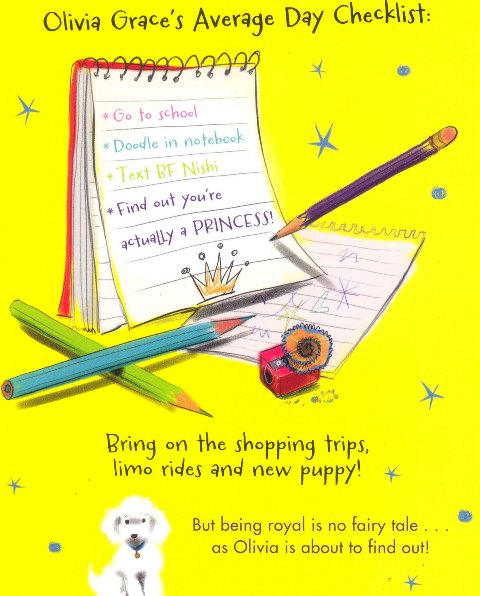 Olivia Grace's Average Day Checklist:
* Go to school
* Doodle in notebook
* Text BF Nishi
* Find out you're
actually a PRINCESS!
Bring on the shopping trips,
limo rides and new puppy!
But being royal is no fairy tale . . .
as Olivia is about to find out!